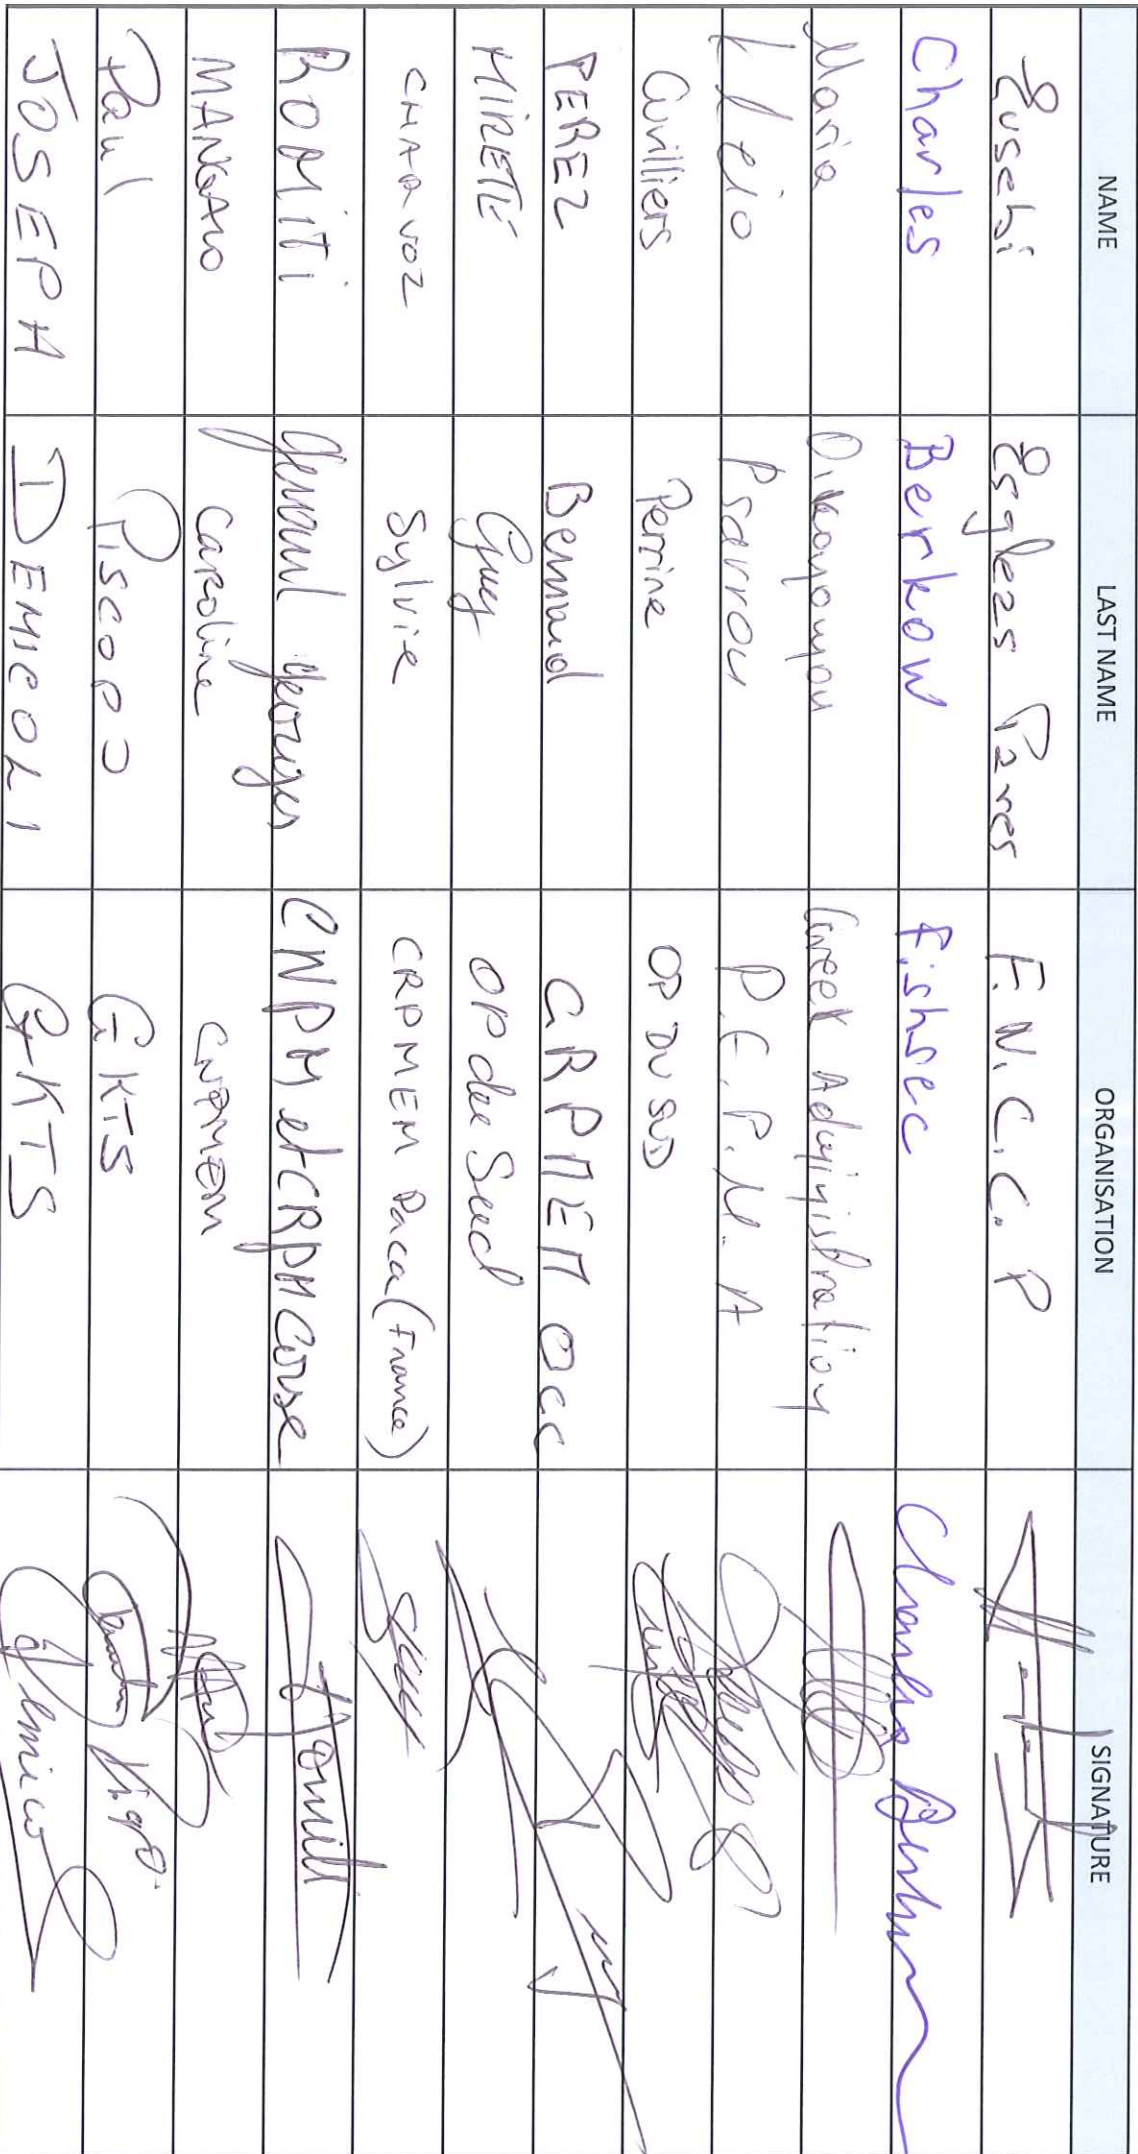 NAME LAST NAME ORGANISATION SIGNATURE
Eusebi Esgleas Pares F.N.C.C.P
Charles Berkow Fishsec Charles Berkow
Maria Greek Administration
Kleio Psarrou P.E.P.M.A
Cuvilliers Perrine OP DU SUD
PEREZ Bernard CRPMEM Occ
MIRETTE Guy OP du Sud
CHARVOZ Sylvie CRPMEM Paca (France)
ROMITI Gerard Georges CNPM et CRPM Corse
MANGANO Caroline CNPMEM
Paul Piscopo GKTS
JOSEPH DEMICOLI GKTS